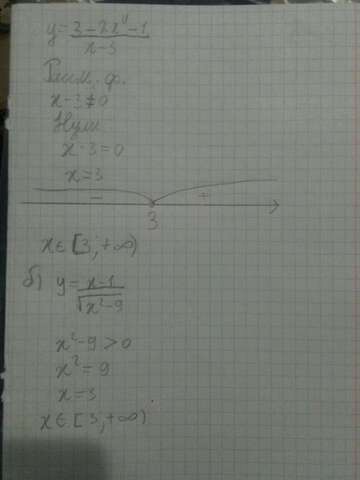 y = (3 - 2x⁴ - 1)/(x - 3)
Расм. ф.
x - 3 ≠ 0
Нули
x - 3 = 0
x = 3
- +
3
x ∈ [3; +∞)
б) y = (x - 1)/√(x² - 9)
x² - 9 > 0
x² = 9
x = 3
x ∈ [3; +∞)